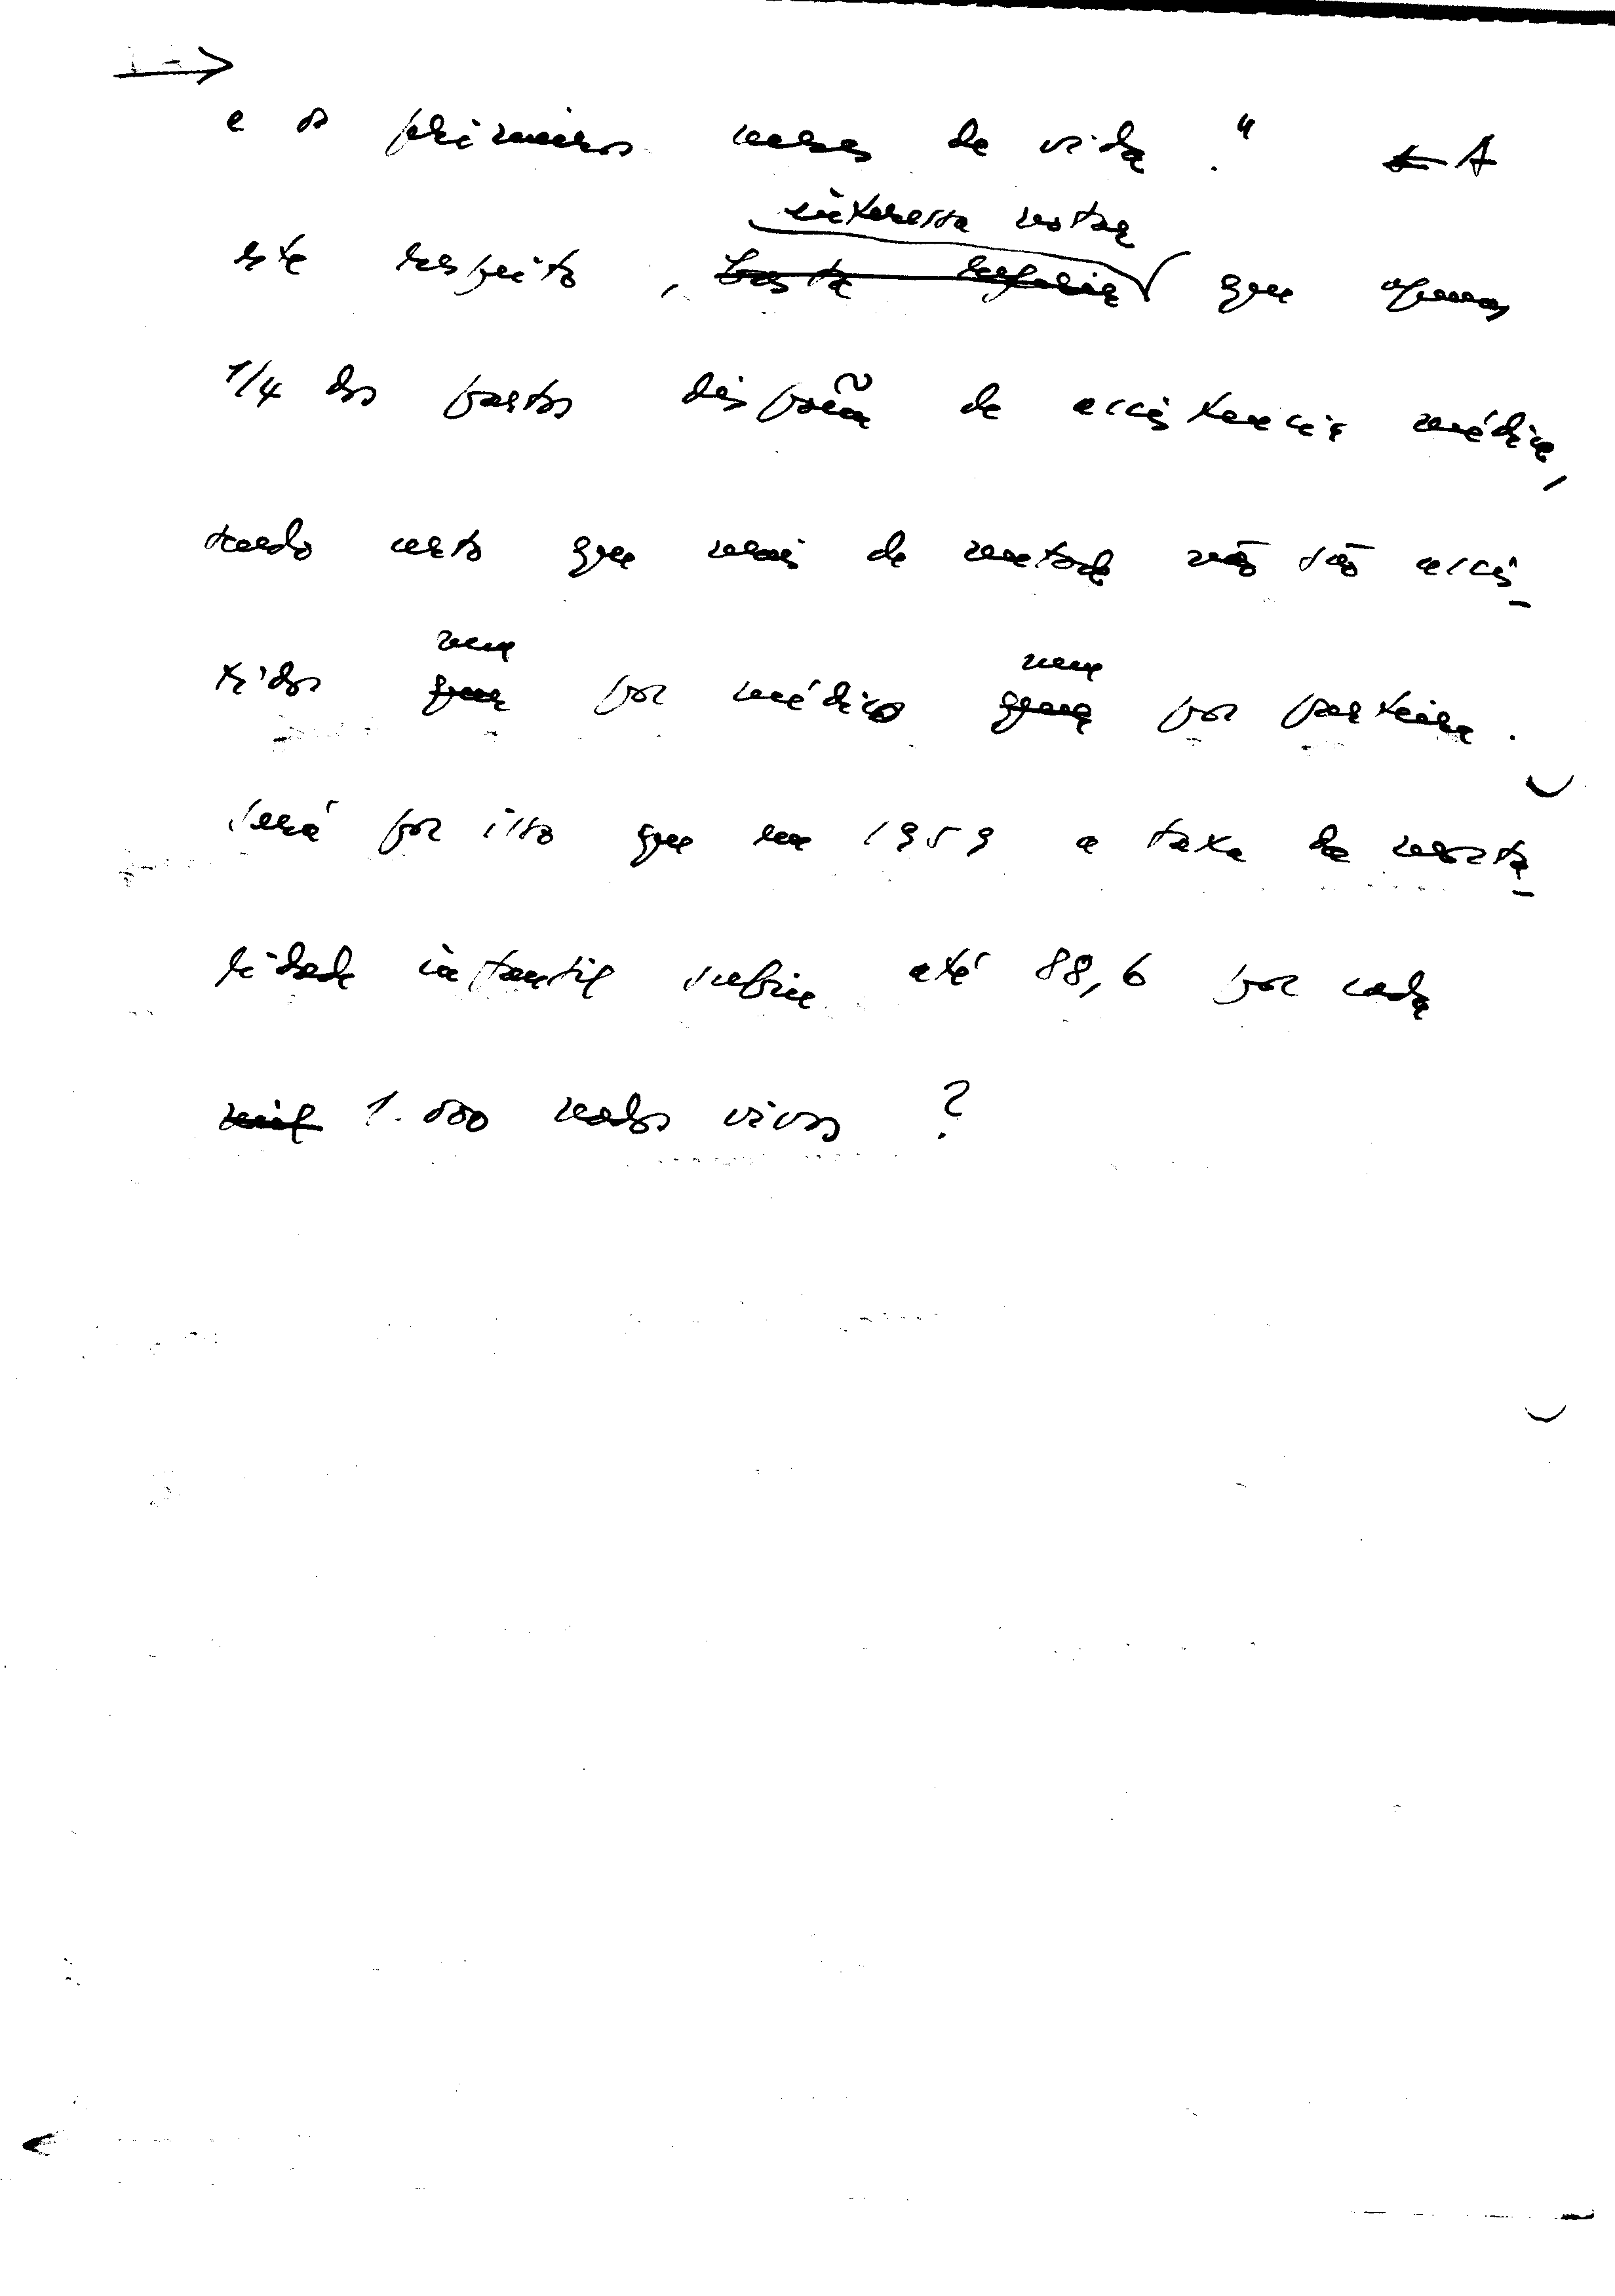 e os primeiros meses de vida." A
interessa notar
este respeito, basta referir que apenas
1/4 dos partos dispõem de assistencia médica,
sendo certo que mais de metade não são assis-
nem nem
tidos quer por médico quer por parteira.
Será por isso que em 1959 a taxa de morta-
lidade infantil subiu até 88,6 por cada
mil 1.000 nados vivos ?